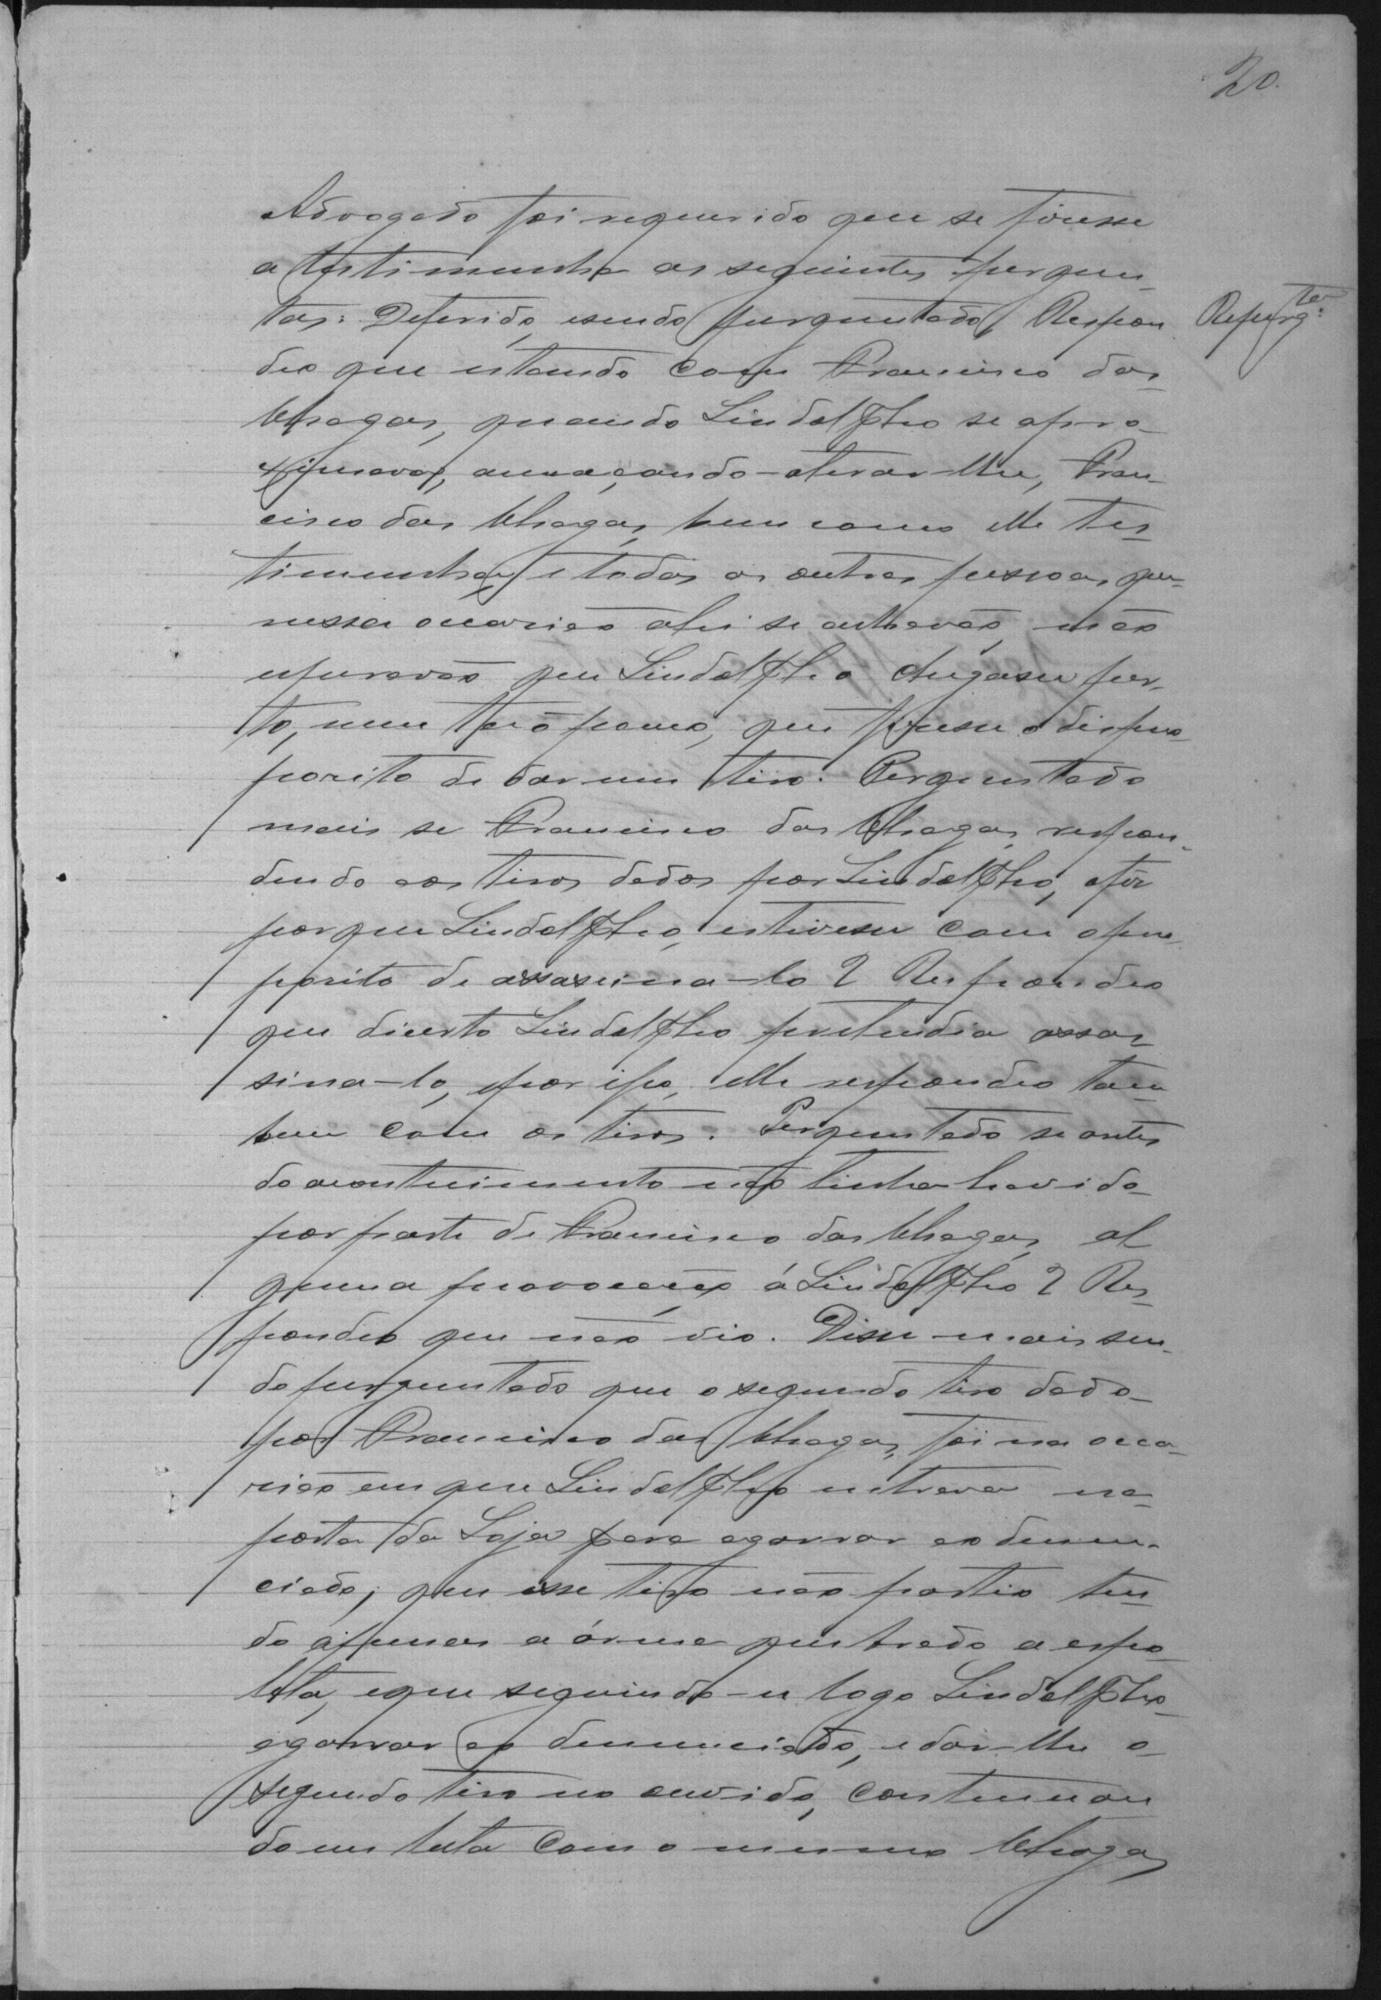 20.
Advogado foi requerido que se fisesse
a testimunha as seguintes pergun-
tas: Deferido, esendo perguntado, Respon
Reperg.tas
deo que estando com Francisco das
Chagas, quando Lindolpho se apro-
ximava, ameaçando-atirar-lhe, Fran-
cisco das Chagas, bem como elle tes-
timunha, e todas as outras pessoas, que
nessa occasião ahi se achavão, não
esperavão que Lindolpho chegasse per-
to, nem tão pouco, que fisesse o des
posito de dar um tiro. Perguntado
mais se Francisco das Chagas, respon-
dendo aos tiros dados por Lindolpho, o fez
porque Lindolpho, estivesse com o pro-
posito de assassina-lo? Respondeo
que decerto Lindolpho pretendia assas-
sina-lo, e por isso, elle respondeo tam
bem com os tiros. Perguntado se antes
do acontecimento não tinha havido
por parte de Francisco das Chagas, al
guma provocação á Lindolpho? Res-
pondeo que não vio. Disse mais sen-
do perguntado que o segundo tiro dado
por Francisco das Chagas, foi na occa-
sião em que Lindolpho entrava na
porta da Loja para agarrar ao denun-
ciado; que esse tiro não partio ten-
do apenas a arma quebrado a espo-
leta, e que seguindo-se logo Lindolpho
agarrar ao denunciado, e dar-lhe o
segundo tiro no ouvido, continuan
do em luta com o mesmo Chagas